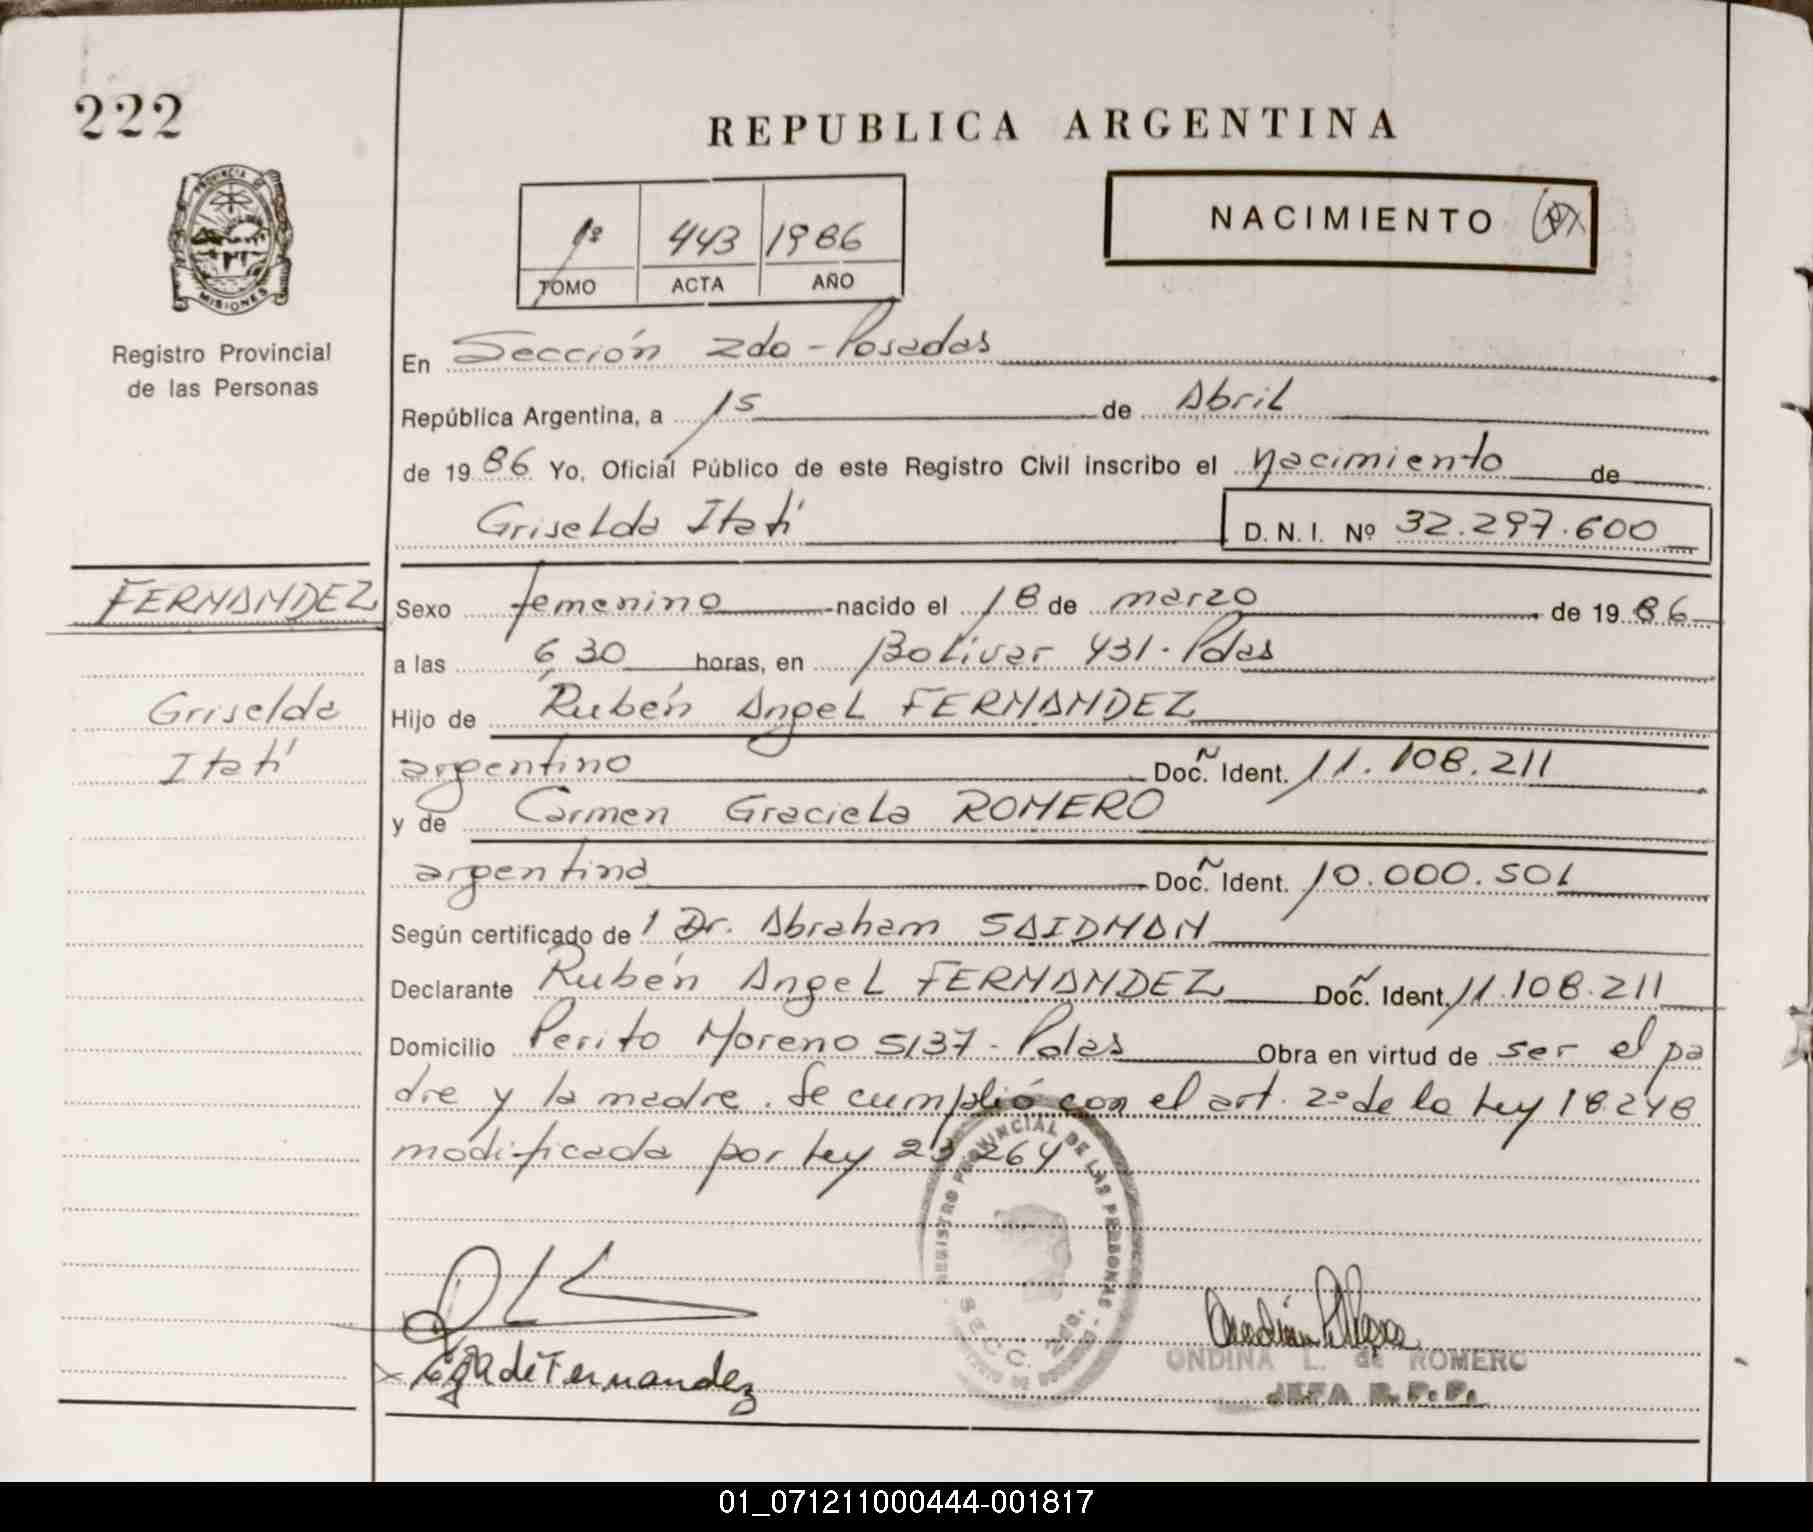 222
REPUBLICA ARGENTINA
PROVINCIA DE
MISIONES
Registro Provincial
de las Personas
1º 443 1986
TOMO ACTA AÑO
NACIMIENTO
En Sección 2da - Posadas
República Argentina, a 15 de Abril
de 1986 Yo, Oficial Público de este Registro Civil inscribo el nacimiento de
Griselda Itatí D. N. I. Nº 32.297.600
FERNANDEZ
Griselda
Itatí
Sexo femenino nacido el 18 de marzo de 1986
a las 6,30 horas, en Bolivar 431 - Pdas
Hijo de Rubén Angel FERNANDEZ
argentino Doc. Ident. 11.108.211
y de Carmen Graciela ROMERO
argentina Doc. Ident. 10.000.501
Según certificado de 1 Dr. Abraham SAIDMAN
Declarante Rubén Angel FERNANDEZ Doc. Ident. 11.108.211
Domicilio Perito Moreno 5137 - Pdas Obra en virtud de ser el pa
dre y la madre. Se cumplió con el art. 2º de la Ley 18.248
modificada por Ley 23264
REGISTRO PROVINCIAL DE LAS PERSONAS
SECC. 2da.
de Fernandez
ONDINA L. de ROMERO
JEFA R. P. P.
01_071211000444-001817